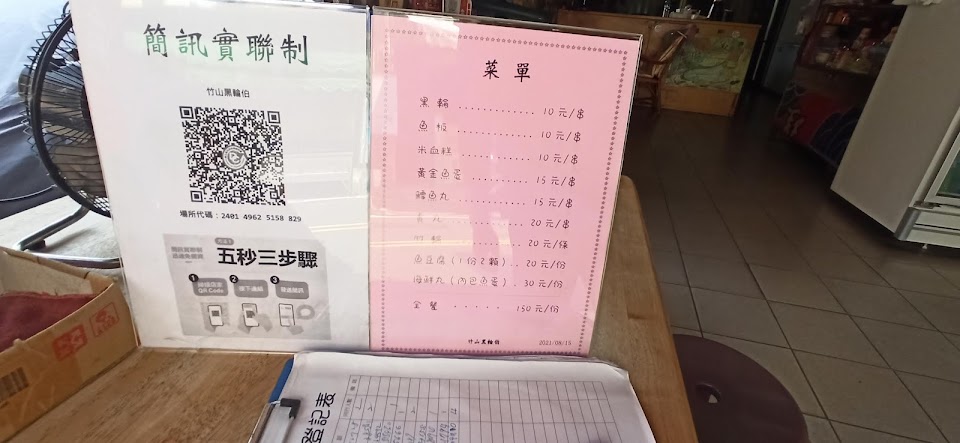 簡訊實聯制
竹山黑輪伯
場所代碼：2401 4962 5158 829
五秒三步驟
1 2 3
掃描店家
QR Code
菜單
黑輪 ............ 10元/串
魚板 ............ 10元/串
米血糕 ............ 10元/串
黃金魚蛋 .......... 15元/串
鱈魚丸 ........... 15元/串
20元/串
竹輪 20元/條
魚豆腐(1份2顆) .. 20元/份
海鮮丸(內包魚蛋) . 30元/份
全餐 ..... 150元/份
竹山黑輪伯
2021/08/15
登記表